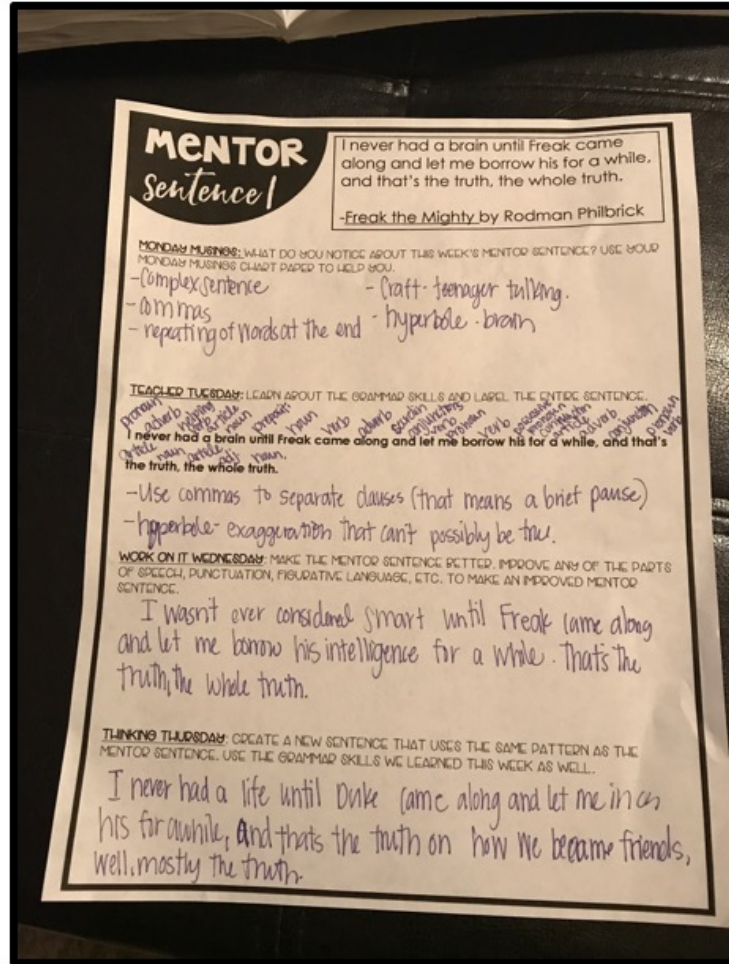 MENTOR
Sentence 1
I never had a brain until Freak came
along and let me borrow his for a while,
and that's the truth, the whole truth.
-Freak the Mighty by Rodman Philbrick
MONDAY MUSINGS: WHAT DO YOU NOTICE ABOUT THIS WEEK'S MENTOR SENTENCE? USE YOUR
MONDAY MUSINGS CHART PAPER TO HELP YOU.
-Complex sentence
-commas
- repeating of words at the end
- Craft - teenager talking.
- hyperbole - brain
TEACHER TUESDAY: LEARN ABOUT THE GRAMMAR SKILLS AND LABEL THE ENTIRE SENTENCE.
pronoun adverb helping verb article noun noun verb adverb verb pronoun verb possessive pronoun article adverb conjunction pronoun verb
I never had a brain until Freak came along and let me borrow his for a while, and that's
article noun article adj noun.
the truth, the whole truth.
-Use commas to separate clauses (that means a brief pause)
-hyperbole- exaggeration that can't possibly be true.
WORK ON IT WEDNESDAY: MAKE THE MENTOR SENTENCE BETTER. IMPROVE ANY OF THE PARTS
OF SPEECH, PUNCTUATION, FIGURATIVE LANGUAGE, ETC. TO MAKE AN IMPROVED MENTOR
SENTENCE.
I wasn't ever considered smart until Freak came along
and let me borrow his intelligence for a while. That's the
truth, the whole truth.
THINKING THURSDAY: CREATE A NEW SENTENCE THAT USES THE SAME PATTERN AS THE
MENTOR SENTENCE. USE THE GRAMMAR SKILLS WE LEARNED THIS WEEK AS WELL.
I never had a life until Duke came along and let me in on
his for awhile, and thats the truth on how we became friends,
well, mostly the truth.